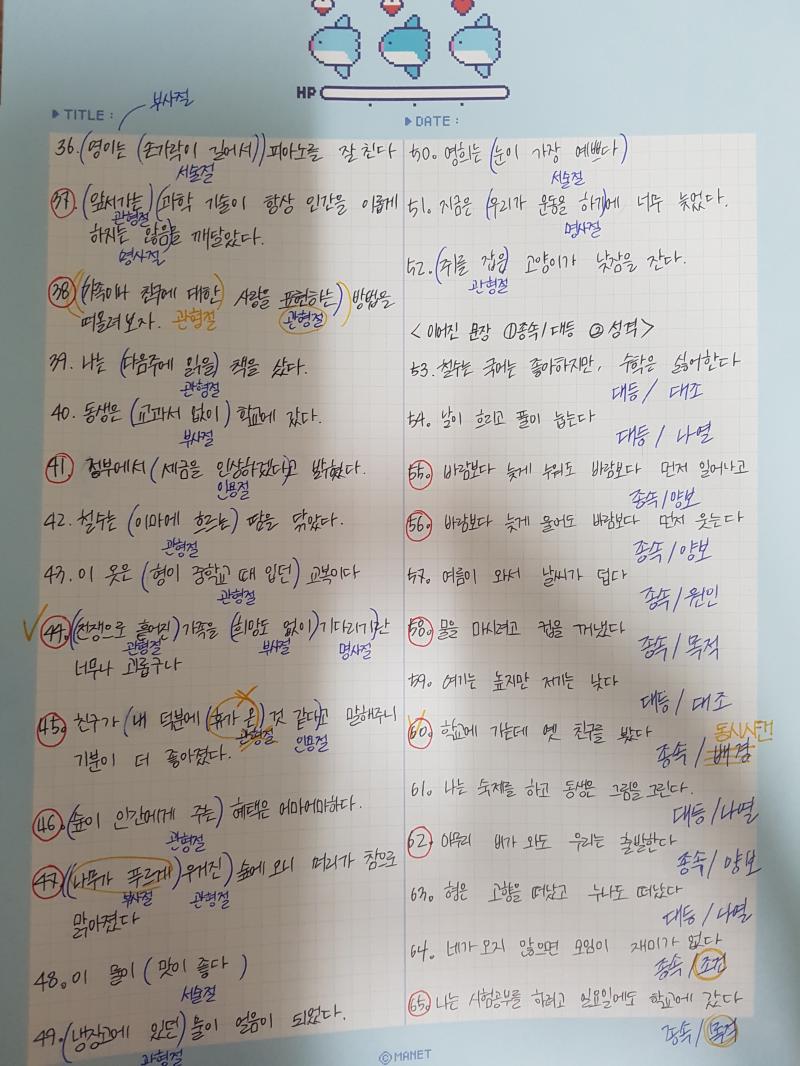 HP
▶TITLE:
부사절
36. (영이는 (손가락이 길어서)) 피아노를 잘 친다
서술절
37. (앞서가는) (과학 기술이 항상 인간을 이롭게
관형절
하지는 않음)을 깨달았다.
명사절
38. ((가족이나 친구에 대한) 사랑을 표현하는) 방법을
떠올려 보자. 관형절 관형절
39. 나는 (다음주에 읽을) 책을 샀다.
관형절
40. 동생은 (교과서 없이) 학교에 갔다.
부사절
41. 정부에서 (세금을 인상하겠다)고 발표했다.
인용절
42. 철수는 (이마에 흐르는) 땀을 닦았다.
관형절
43. 이 옷은 (형이 중학교 때 입던) 교복이다
관형절
44. ((전쟁으로 흩어진) 가족을 (희망도 없이) 기다리기)란
관형절 부사절 명사절
너무나 괴롭구나
45. 친구가 (내 덕분에 (휴가 온) 것 같다)고 말해주니
관형절 인용절
기분이 더 좋아졌다.
46. (숲이 인간에게 주는) 혜택은 어마어마하다.
관형절
47. ((나무가 푸르게) 우거진) 숲에 오니 머리가 참으로
부사절 관형절
맑아졌다
48. 이 물이 (맛이 좋다)
서술절
49. (냉장고에 있던) 물이 얼음이 되었다.
관형절
▶DATE:
50. 영희는 (눈이 가장 예쁘다)
서술절
51. 지금은 (우리가 운동을 하기)에 너무 늦었다.
명사절
52. (쥐를 잡은) 고양이가 낮잠을 잔다.
관형절
<이어진 문장 ①종속/대등 ②성격>
53. 철수는 국어는 좋아하지만, 수학은 싫어한다
대등/대조
54. 날이 흐리고 풀이 눕는다
대등/나열
55. 바람보다 늦게 누워도 바람보다 먼저 일어나고
종속/양보
56. 바람보다 늦게 울어도 바람보다 먼저 웃는다
종속/양보
57. 여름이 와서 날씨가 덥다
종속/원인
58. 물을 마시려고 컵을 꺼냈다
종속/목적
59. 여기는 높지만 저기는 낮다
대등/대조
60. 학교에 가는데 옛 친구를 봤다
종속/배경
61. 나는 숙제를 하고 동생은 그림을 그린다.
대등/나열
62. 아무리 비가 와도 우리는 출발한다
종속/양보
63. 형은 고향을 떠났고 누나도 떠났다
대등/나열
64. 네가 오지 않으면 모임이 재미가 없다
종속/조건
65. 나는 시험공부를 하려고 일요일에도 학교에 갔다
종속/목적
©MANET